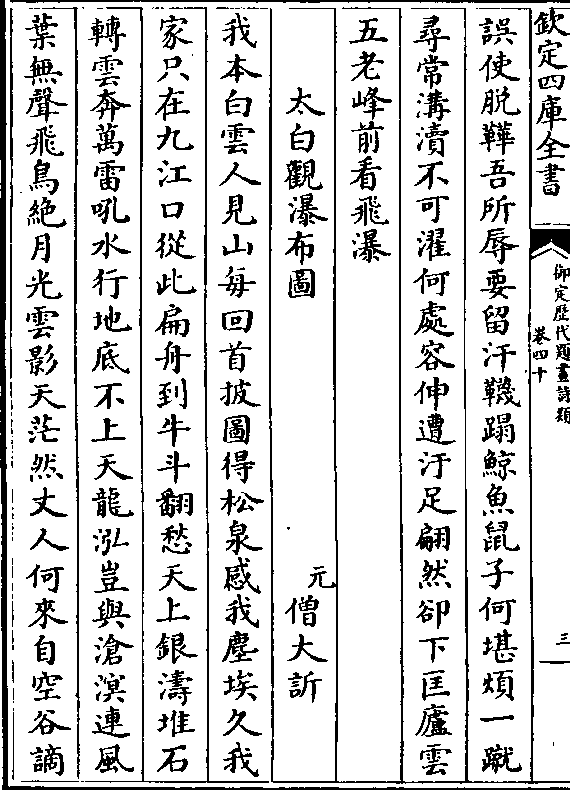 欽定四庫全書
御定歷代題畫詩類
卷四十
三
誤使脫鞾吾所辱要留汗韈蹋鯨魚鼠子何堪煩一蹴
尋常溝瀆不可濯何處容伸遭汙足翩然卻下匡廬雲
五老峰前看飛瀑
太白觀瀑布圖
元僧大訢
我本白雲人見山每回首披圖得松泉感我塵埃久我
家只在九江口從此扁舟到牛斗翻愁天上銀濤堆石
轉雲奔萬雷吼水行地底不上天龍泓豈與滄溟連風
葉無聲飛鳥絶月光雲影天茫然丈人何來自空谷謫